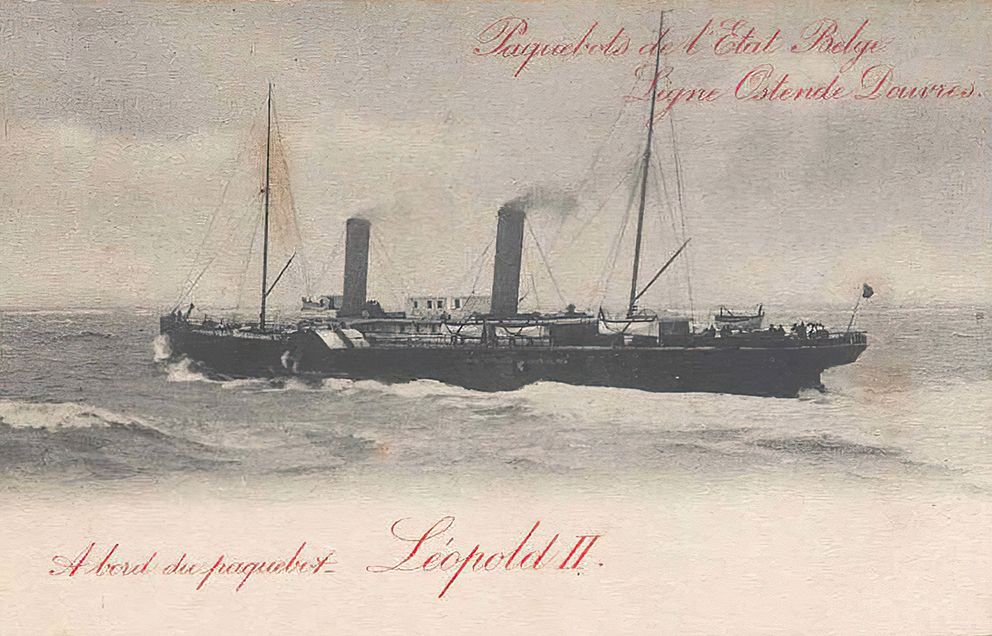 Paquebots de l'Etat Belge
Ligne Ostende Douvres.
A bord du paquebot_ Léopold II.